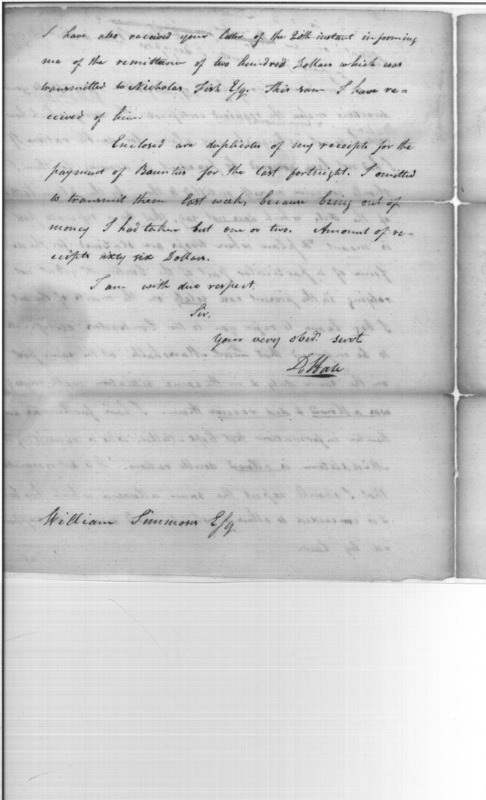 I have also received your letter of the 20th instant informing
me of the remittance of two hundred Dollars which was
transmitted to Nicholas Fish Esq. This sum I have re=
ceived of him.
Enclosed are duplicates of my receipts for the
payment of Bounties for the last fortnight. I omitted
to transmit them last week, because being out of
money I had taken but one or two. Amount of re=
ceipts sixty six Dollars.
I am with due respect.
Sir.
Your very obed. servt.
D Hale
William Simmons Esq.